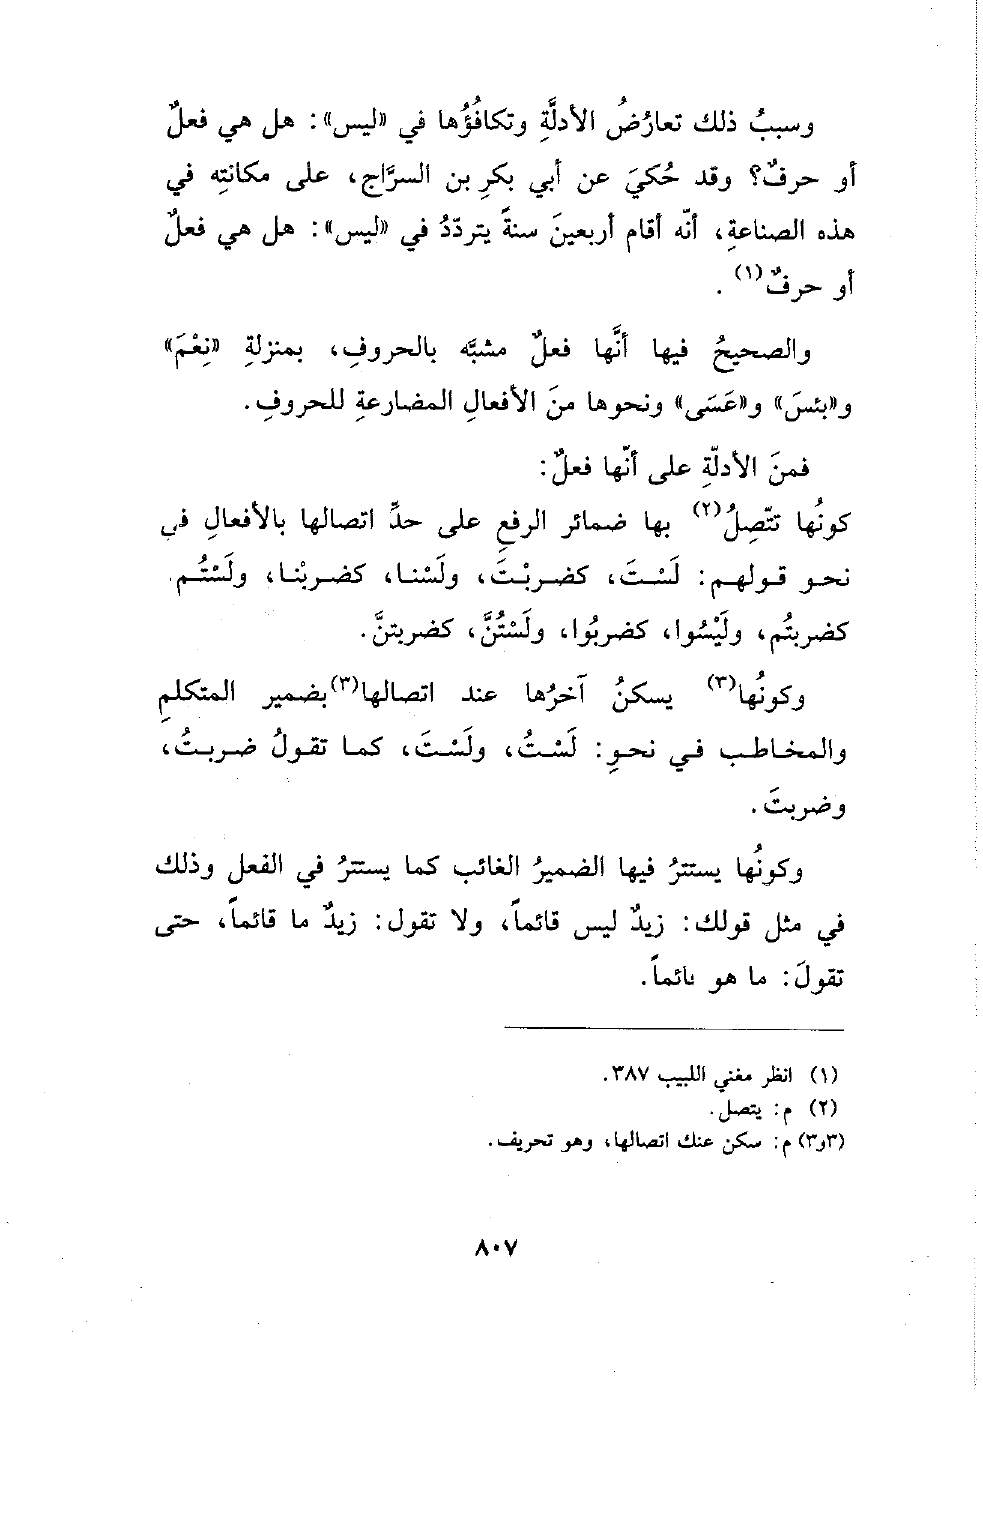 وسببُ ذلك تعارُضُ الأدلَّةِ وتكافُؤُها في «ليس»: هل هي فعلٌ
أو حرفٌ؟ وقد حُكيَ عن أبي بكرِ بن السرَّاج، على مكانتِه في
هذه الصناعةِ، أنّه أقام أربعينَ سنةً يتردّدُ في «ليس»: هل هي فعلٌ
أو حرفٌ(١).
والصحيحُ فيها أنَّها فعلٌ مشبَّه بالحروفِ، بمنزلةِ «نِعْمَ»
و«بئسَ» و«عَسَى» ونحوها منَ الأفعالِ المضارعةِ للحروفِ.
فمنَ الأدلّةِ على أنّها فعلٌ:
كونُها تتّصِلُ(٢) بها ضمائر الرفعِ على حدِّ اتصالها بالأفعالِ في
نحو قولهم: لَسْتَ، كضربْتَ، ولَسْنا، كضربْنا، ولَسْتُم
كضربتُم، ولَيْسُوا، كضربُوا، ولَسْتُنَّ، كضربتنَّ.
وكونُها(٣) يسكنُ آخرُها عند اتصالها(٣) بضمير المتكلمِ
والمخاطب في نحوِ: لَسْتُ، ولَسْتَ، كما تقولُ ضربتُ،
وضربتَ.
وكونُها يستترُ فيها الضميرُ الغائب كما يستترُ في الفعل وذلك
في مثل قولك: زيدٌ ليس قائماً، ولا تقول: زيدٌ ما قائماً، حتى
تقولَ: ما هو بائماً.
(١) انظر مغني اللبيب ٣٨٧.
(٢) م: يتصل.
(٣و٣) م: سكن عنك اتصالها، وهو تحريف.
٨٠٧